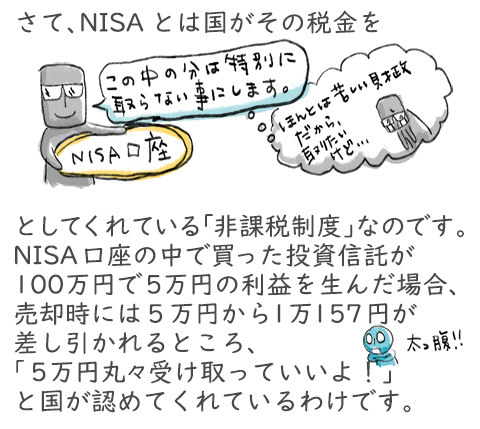 さて、NISAとは国がその税金を
この中の分は特別に
取らない事にします。
NISA口座
ほんとは苦しい財政
だから、
取りたい
けど…
としてくれている「非課税制度」なのです。
NISA口座の中で買った投資信託が
100万円で5万円の利益を生んだ場合、
売却時には5万円から1万157円が
差し引かれるところ、
太っ腹!!
「5万円丸々受け取っていいよ!」
と国が認めてくれているわけです。